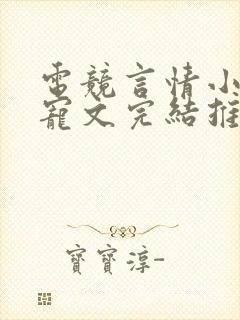 電競言情小
寵文完結推
寶寶淳-